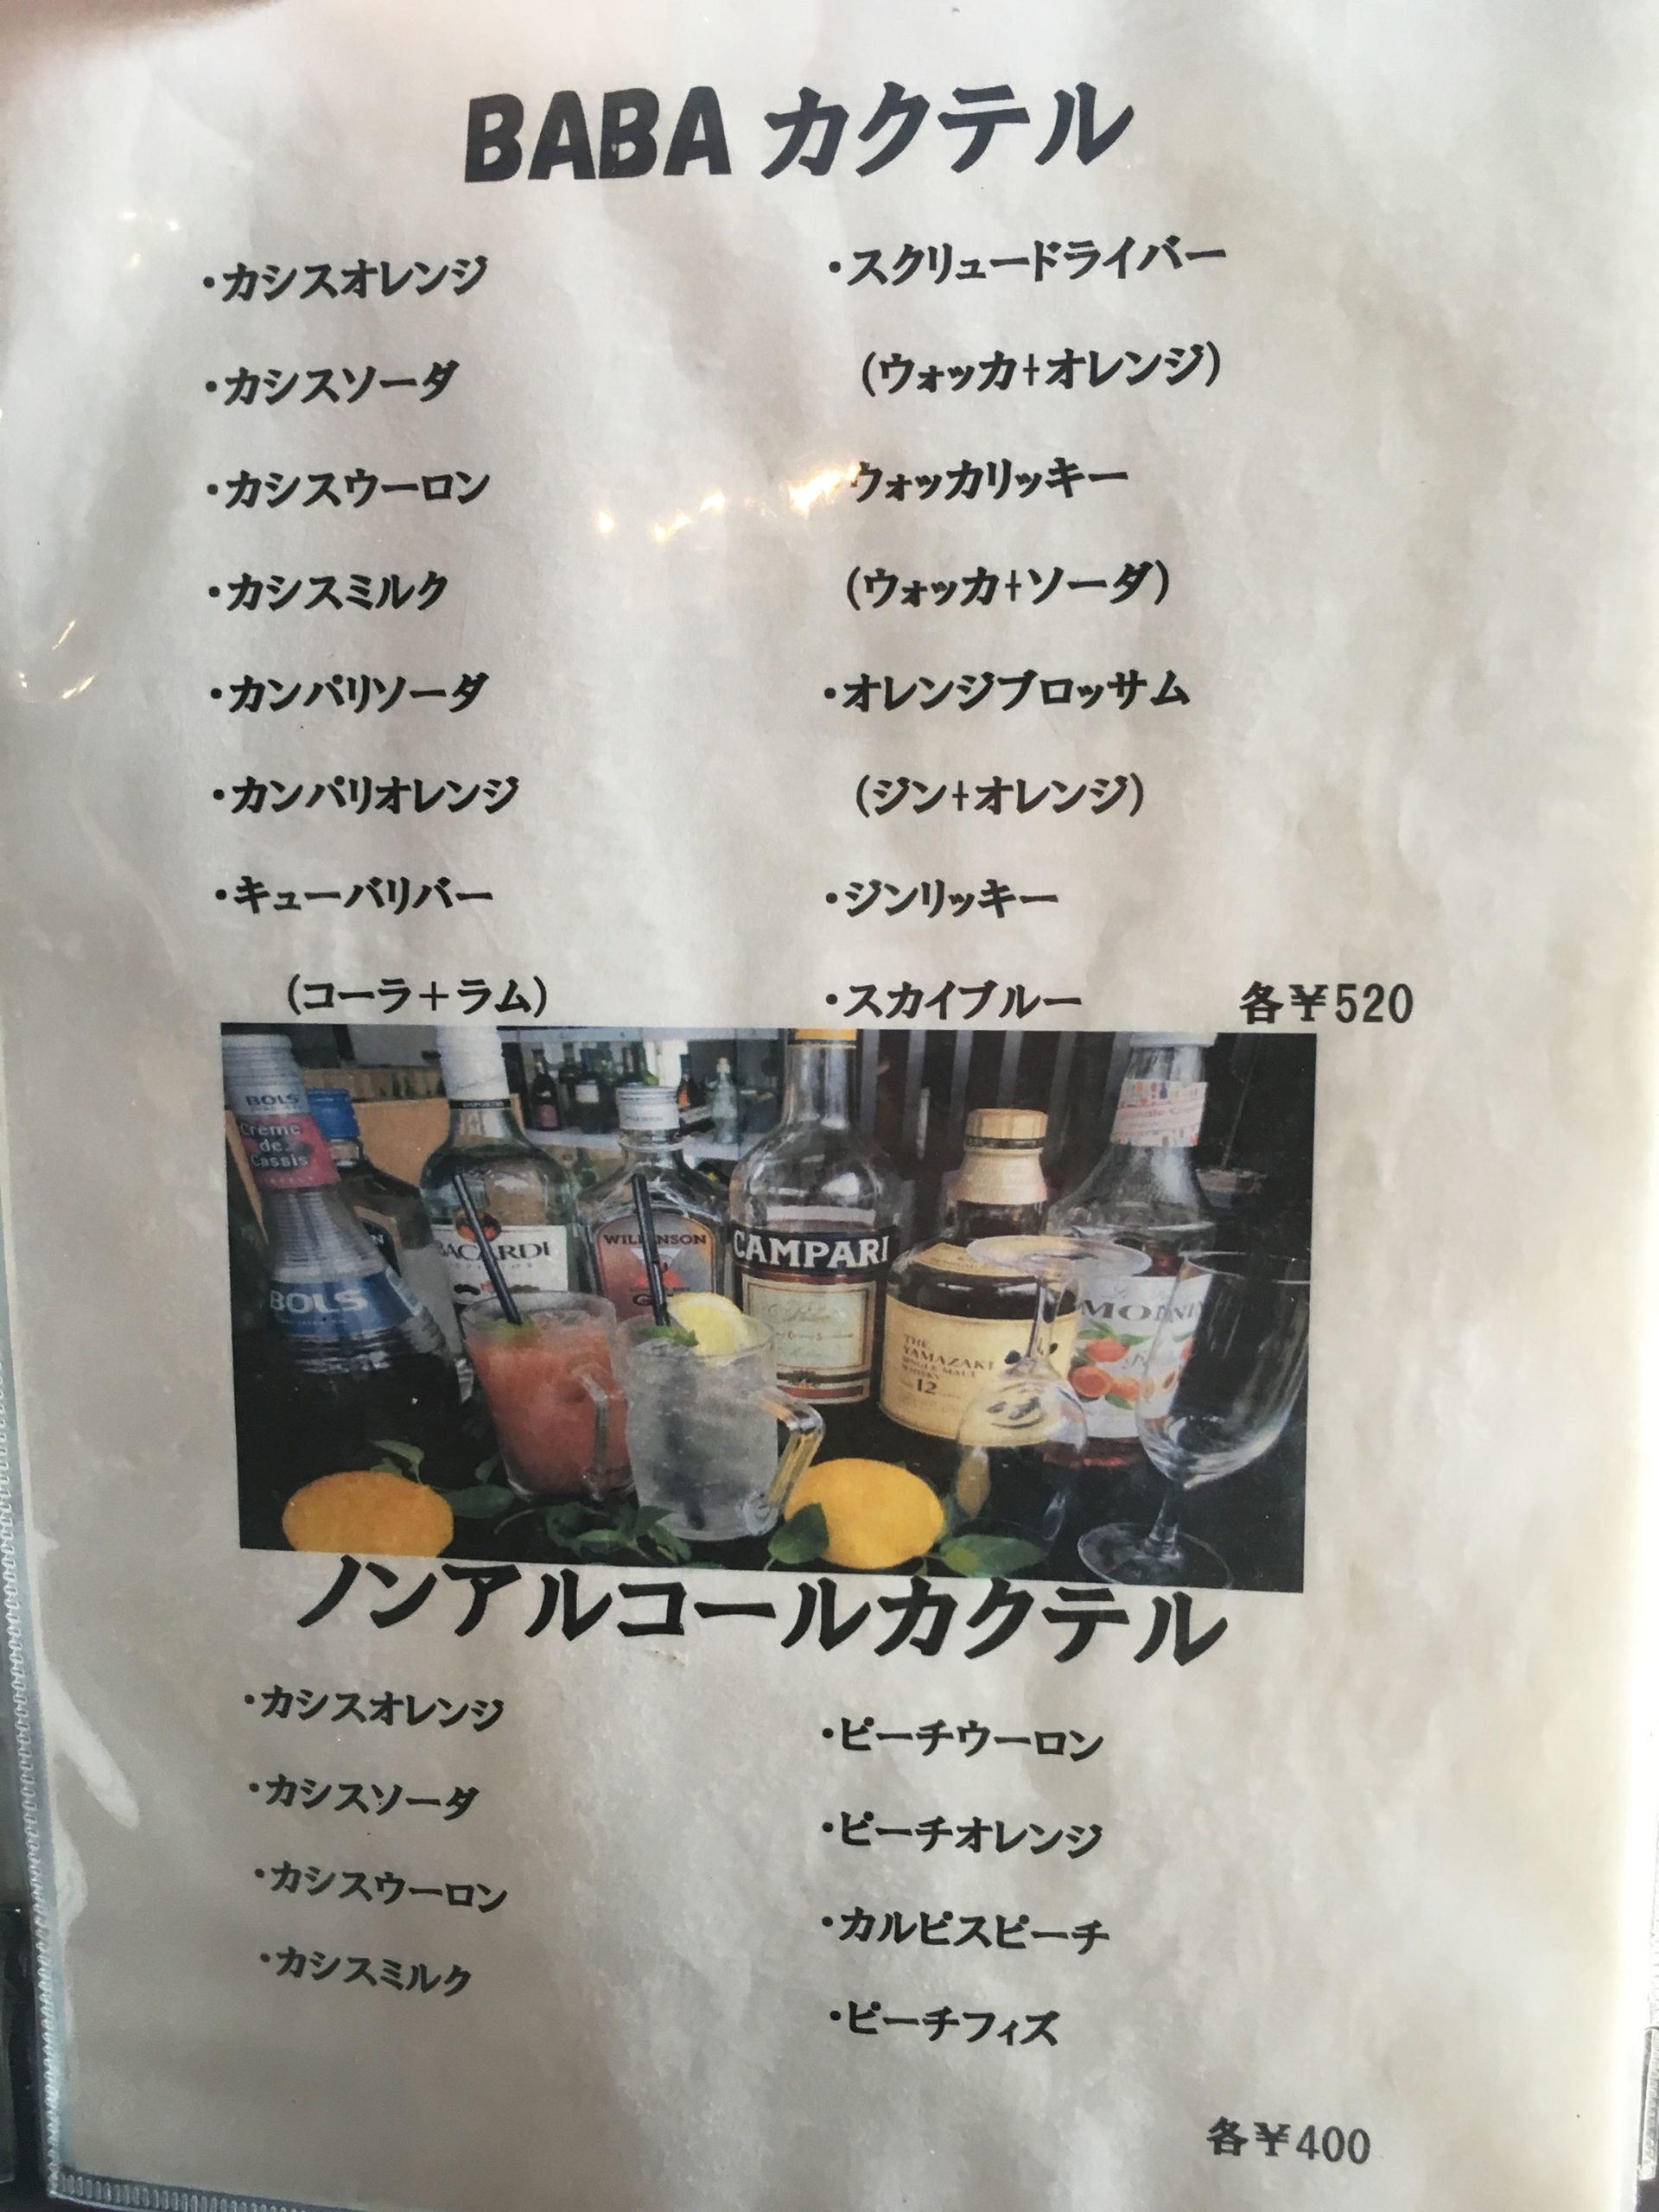 BABA カクテル
・カシスオレンジ
・カシスソーダ
・カシスウーロン
・カシスミルク
・カンパリソーダ
・カンパリオレンジ
・キューバリバー
(コーラ＋ラム)
・スクリュードライバー
(ウォッカ+オレンジ)
ウォッカリッキー
(ウォッカ+ソーダ)
・オレンジブロッサム
(ジン+オレンジ)
・ジンリッキー
・スカイブルー
各¥520
BOLS
Crème
de
Cassis
BOLS
BACARDI
WILKINSON
CAMPARI
THE
YAMAZAKI
SINGLE MALT
WHISKY
12
MONIN
ノンアルコールカクテル
・カシスオレンジ
・カシスソーダ
・カシスウーロン
・カシスミルク
・ピーチウーロン
・ピーチオレンジ
・カルピスピーチ
・ピーチフィズ
各¥400